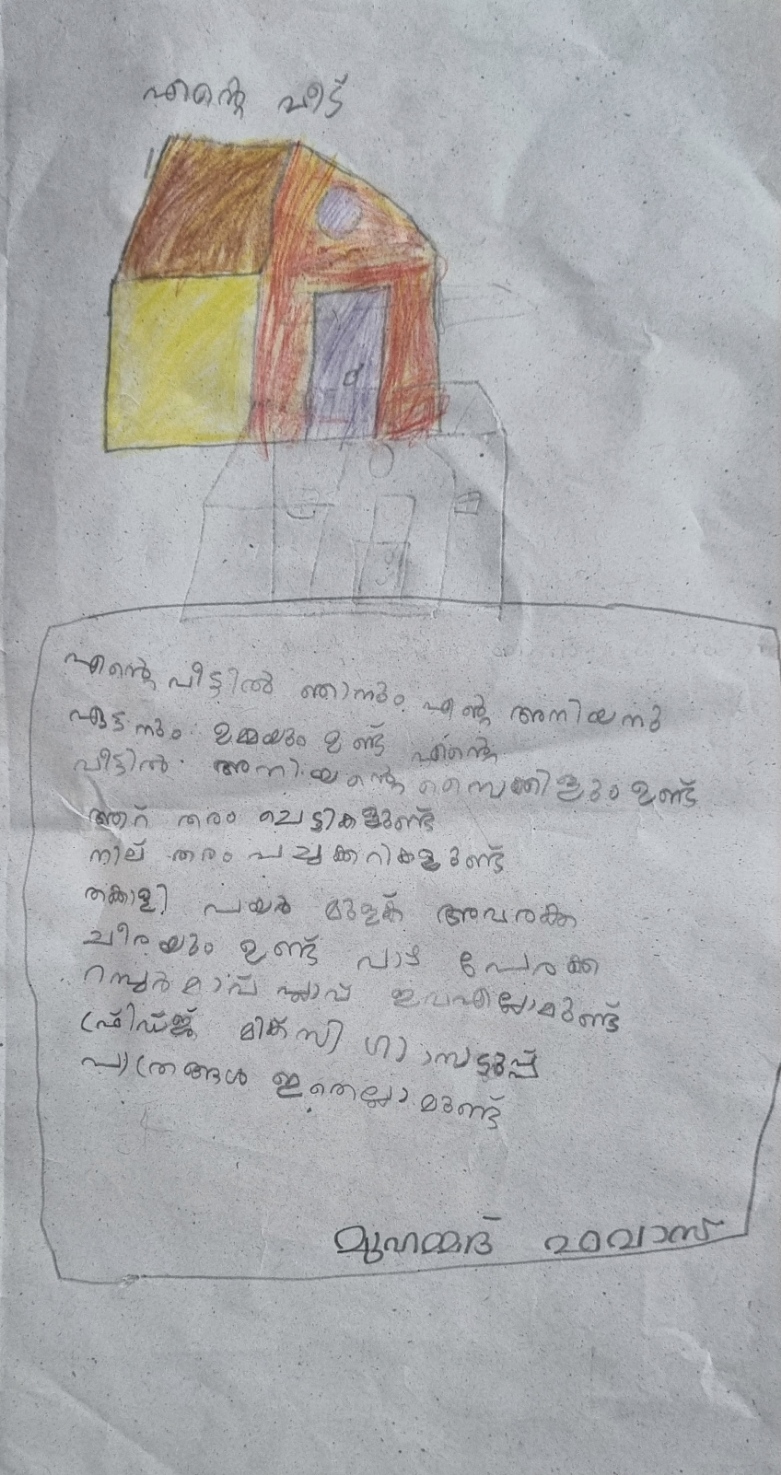 എന്റെ വീട്
എന്റെ വീട്ടിൽ ഞാനും എന്റെ അനിയനു
ഏട്ടനും ഉമ്മയും ഉണ്ട് എന്റെ
വീട്ടിൽ അനിയന്റെ സൈക്കിളും ഉണ്ട്
ആറ് തരം ചെട്ടികളുണ്ട്
നില് തരം പച്ചക്കറികളുണ്ട്
തക്കാളി പയർ മുളക് അവരക്ക
ചീരയും ഉണ്ട് വാഴ പേരക്ക
റമ്പൂർ മാവ് പ്ലാവ് ഇവഎല്ലാമുണ്ട്
ഫ്രിഡ്ജ് മിക്സി ഗ്യാസടുപ്പ്
പാത്രങ്ങൾ ഇതെല്ലാമുണ്ട്
മുഹമ്മദ്